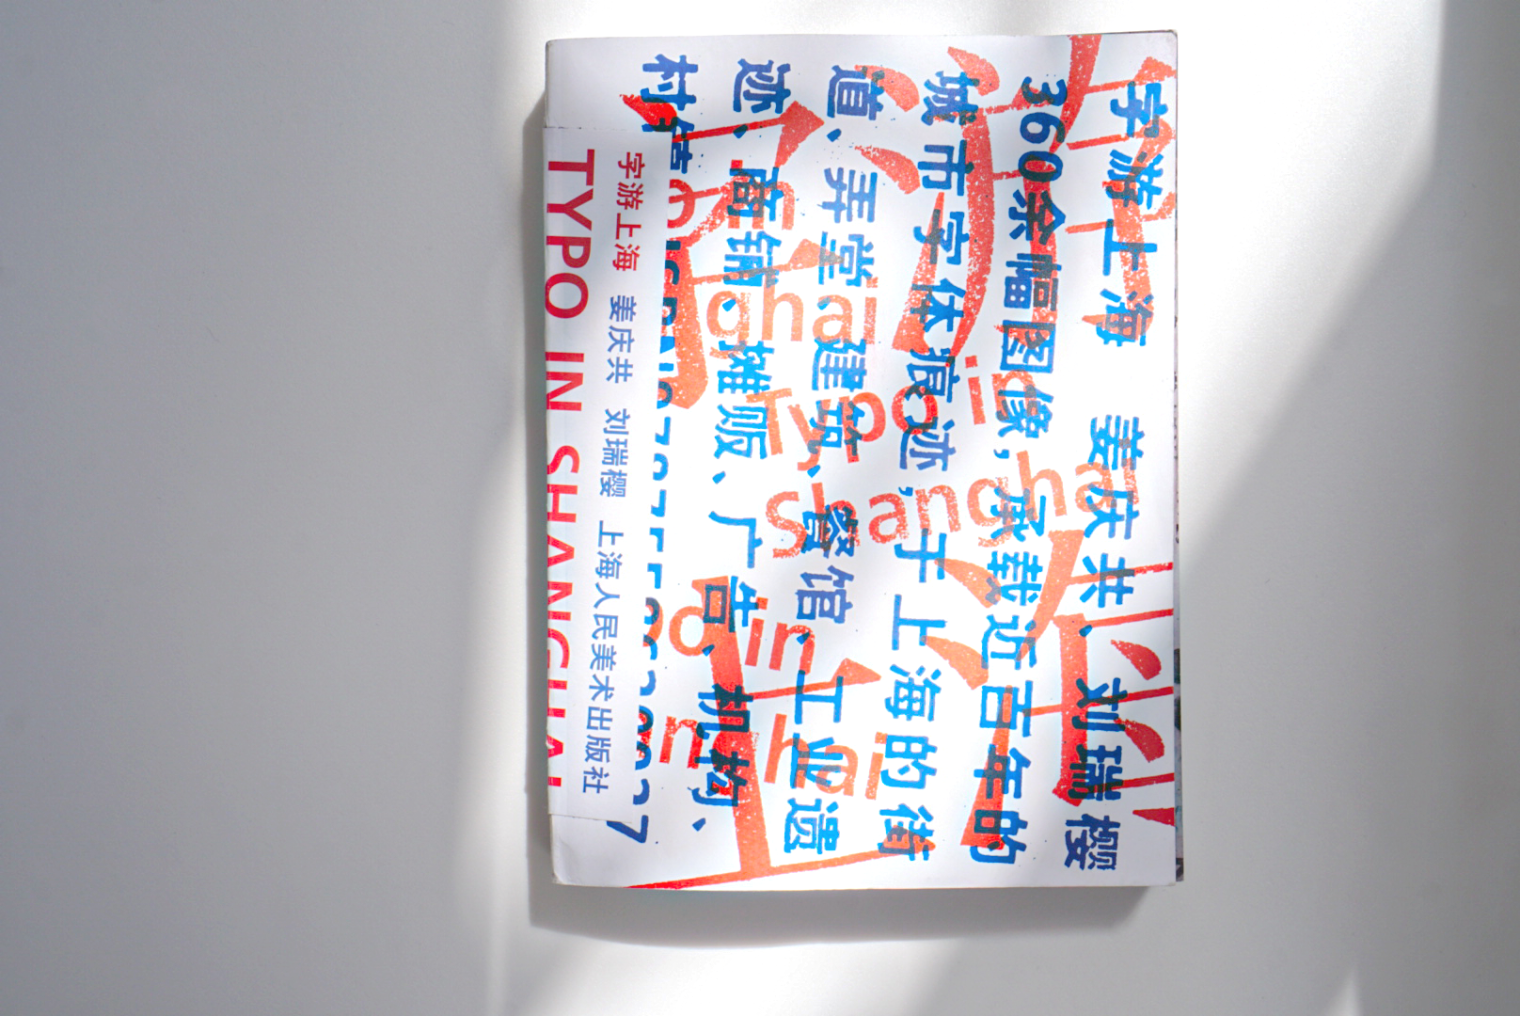 字游上海 姜庆共、刘瑞樱
360余幅图像，承载近百年的
城市字体痕迹，于上海的街
道、弄堂、建筑、餐馆、工业遗
迹、商铺、摊贩、广告、机构、
村
7
字游上海 姜庆共 刘瑞樱 上海人民美术出版社
TYPO IN SHANGHAI
ghai
Typo in
Shanghai